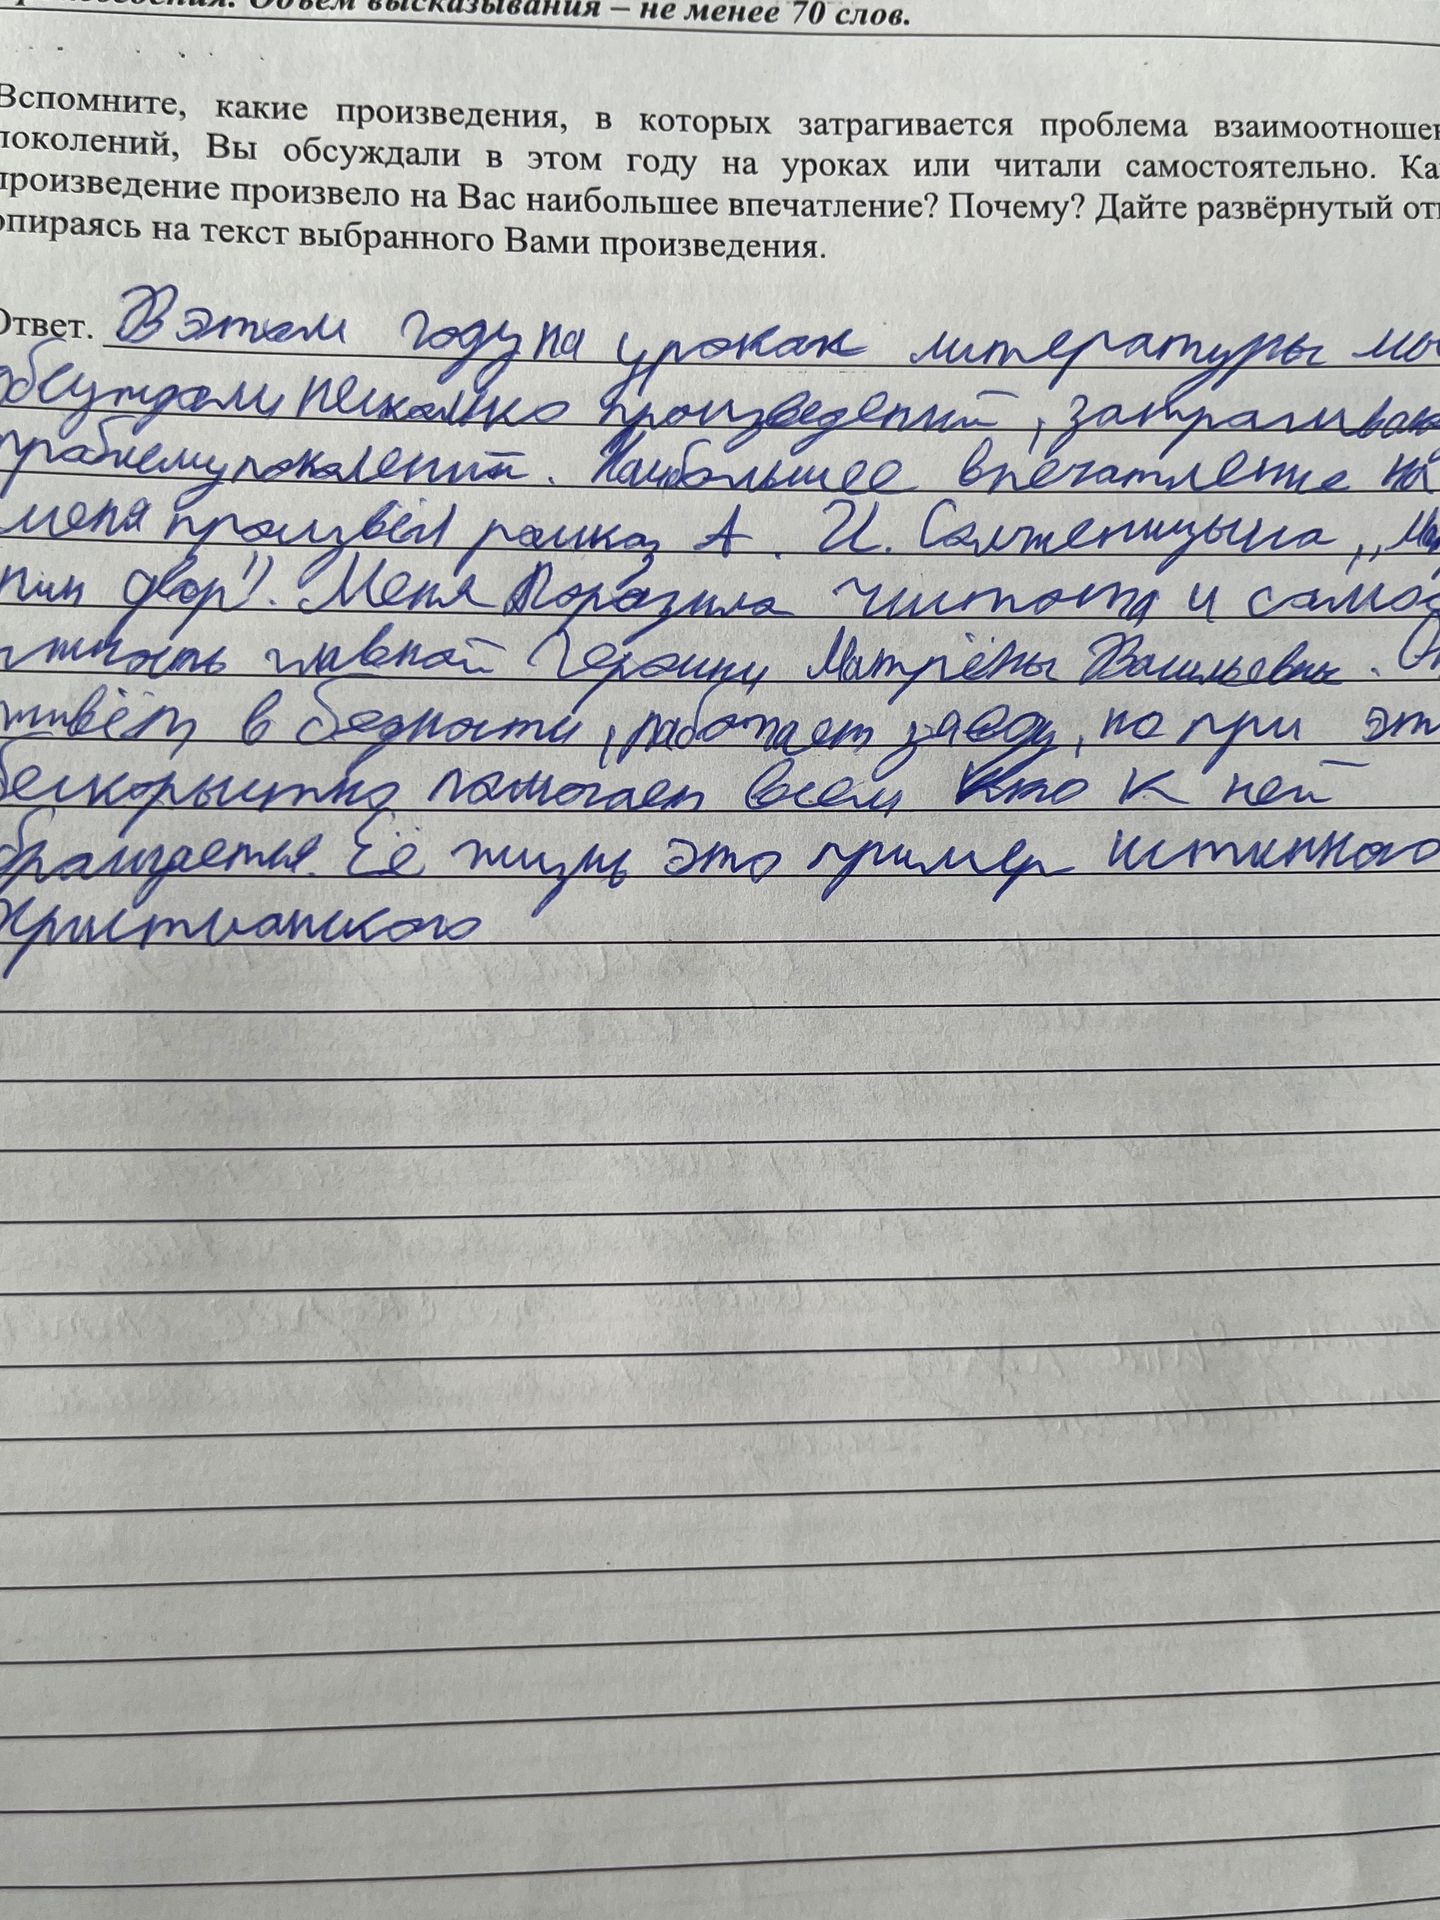 произведения. Объём высказывания – не менее 70 слов.
Вспомните, какие произведения, в которых затрагивается проблема взаимоотношен
поколений, Вы обсуждали в этом году на уроках или читали самостоятельно. Ка
произведение произвело на Вас наибольшее впечатление? Почему? Дайте развёрнутый отв
опираясь на текст выбранного Вами произведения.
Ответ. В этом году на уроках литературы мы
обсуждали несколько произведений, затрагиваю
проблему поколений. Наибольшее впечатление на
меня произвёл рассказ А. И. Солженицына „Матр
нин двор". Меня поразила чистота и самоо
главной героини Матрёны Васильевны. Он
живёт в бедности, работает за еду, но при эт
бескорыстно помогает всем кто к ней
обращается. Её жизнь это пример истинного
христианского